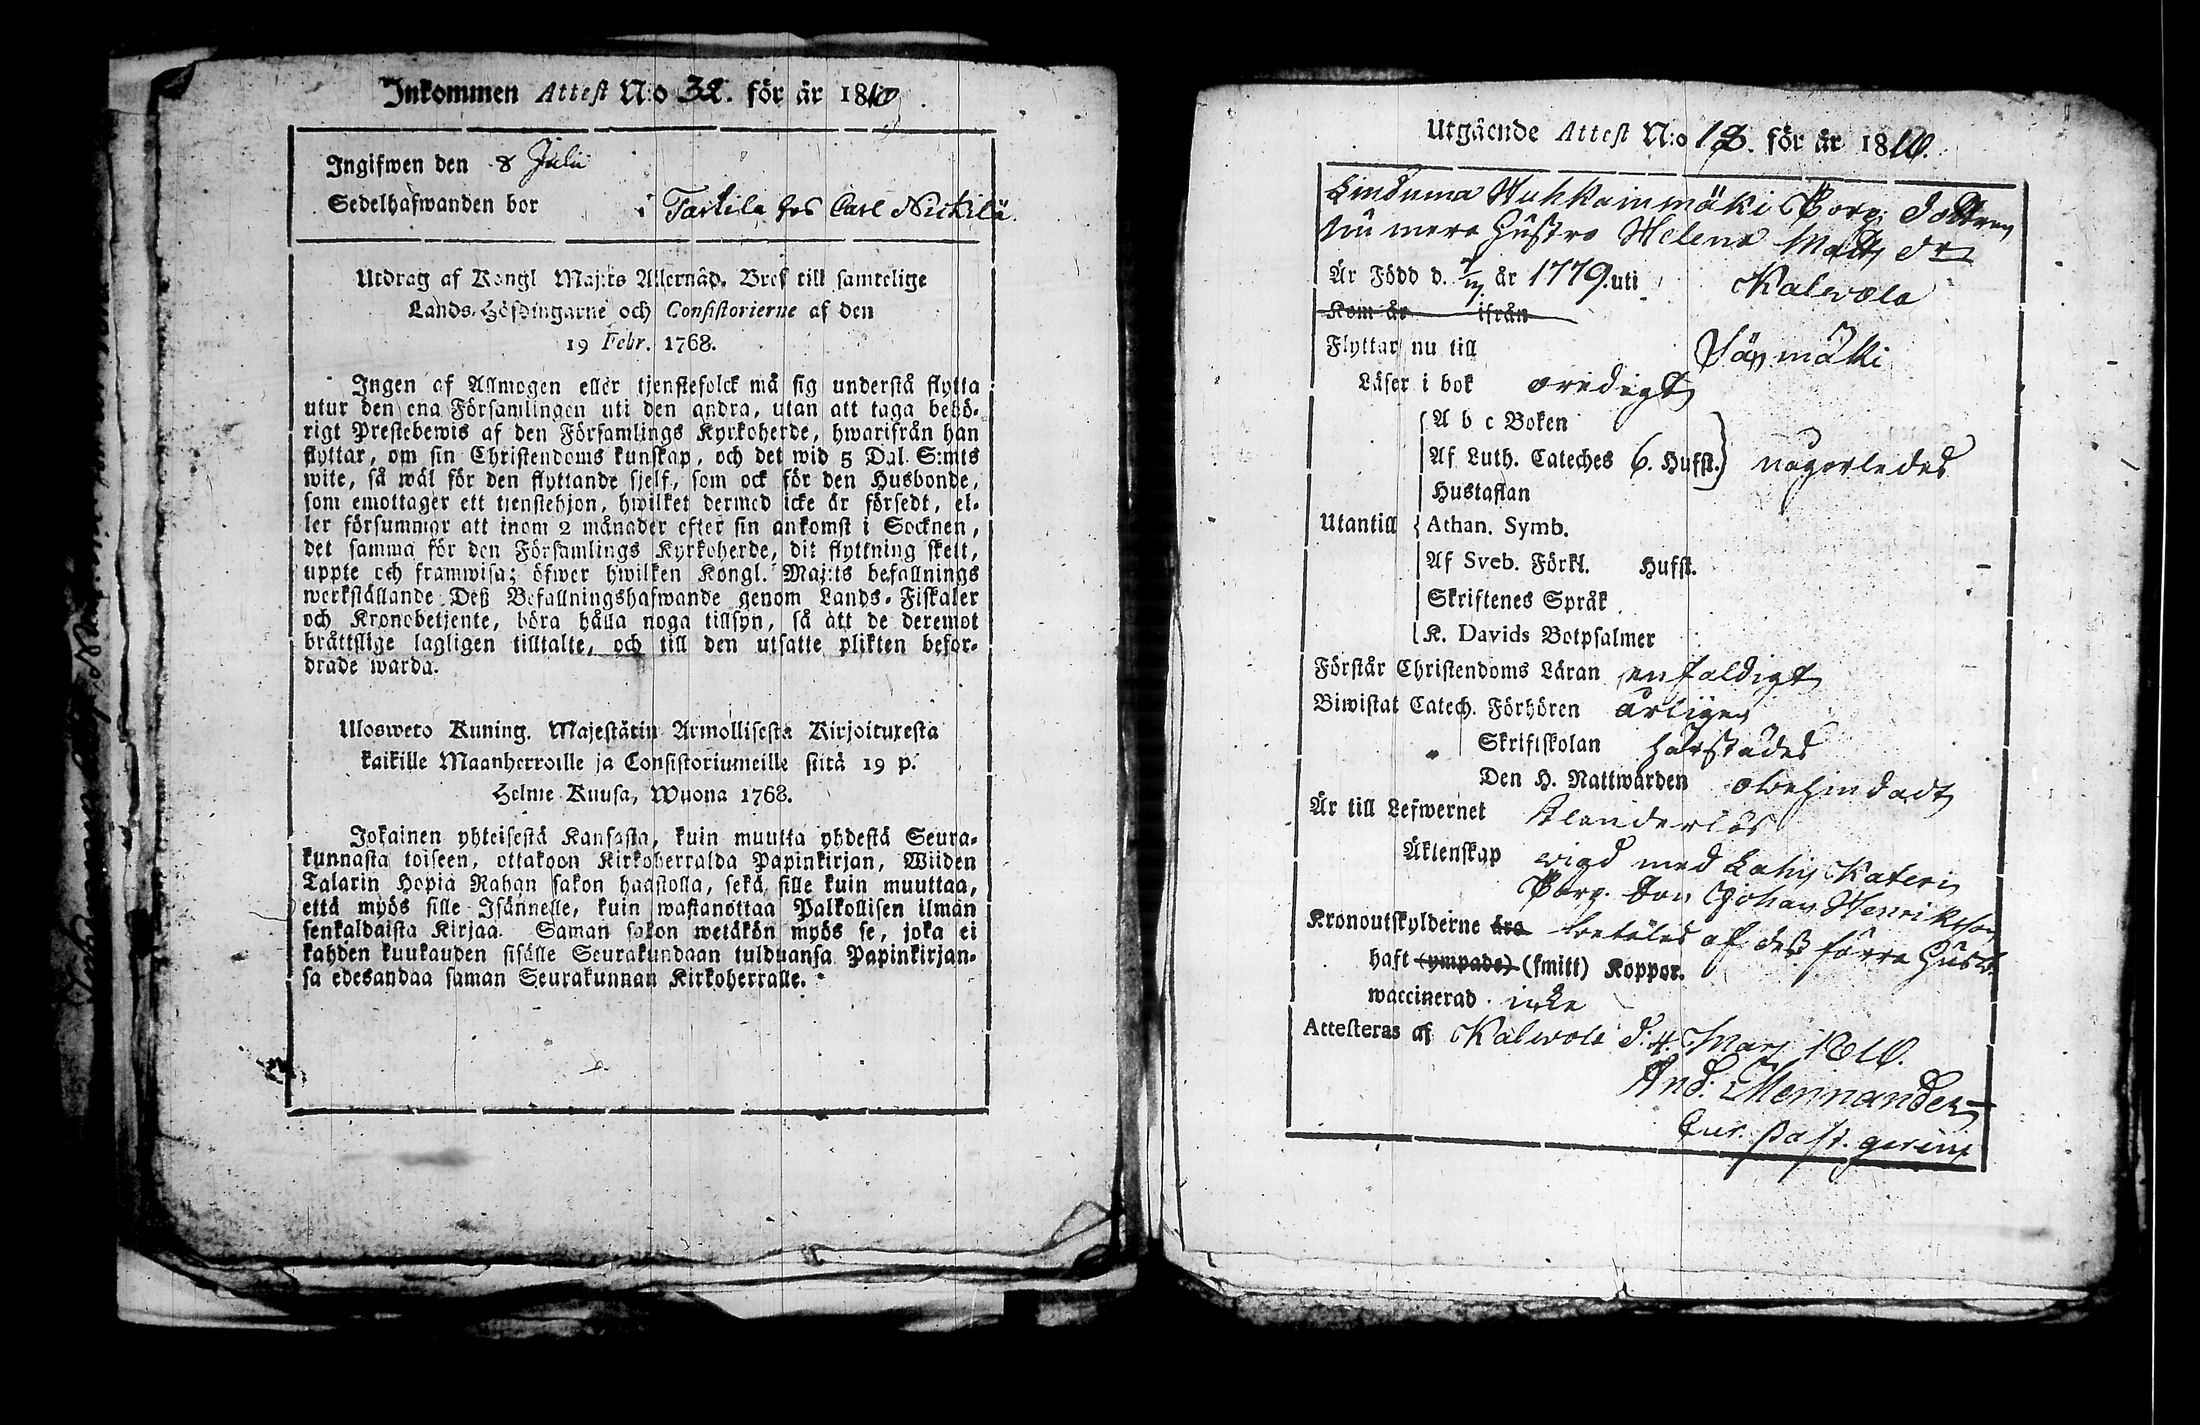 Inkommen Attest N:o 32. för år 1810
Ingifwen den 8 Julii
Sedelhafwanden bor i Tarkila hos Carl Nickilä
Utdrag af Kongl Maj:ts Allernåd. Bref till samtelige
Lands-Höfdingarne och Consistorierne af den
19 Febr. 1768.
Ingen af Allmogen eller tjenstefolck må sig understå flytta
utur den ena Församlingen uti den andra, utan att taga behö-
rigt Prestebewis af den Församlings Kyrkoherde, hwarifrån han
flyttar, om sin Christendoms kunskap, och det wid 5 Dal. S:mts
wite, så wäl för den flyttande sjelf, som ock för den Husbonde,
som emottager ett tjenstehjon, hwilket dermed icke är försedt, el-
ler försummar att inom 2 månader efter sin ankomst i Socknen,
det samma för den Församlings Kyrkoherde, dit flyttning skett,
uppte och framwisa; öfwer hwilken Kongl. Maj:ts befallnings
werkställande Deß Befallningshafwande genom Lands-Fiskaler
och Kronobetjente, böra hålla noga tillsyn, så att de deremot
bråttslige lagligen tilltalte, och till den utsatte plikten befor-
drade warda.
Ulosweto Kuning. Majestätin Armollisesta Kirjoituxesta
kaikille Maanherroille ja Consistoriumeille siitä 19 p.
Helme Kuusa, Wuona 1768.
Jokainen yhteisestä Kansasta, kuin muutta yhdestä Seura-
kunnasta toiseen, ottakoon Kirkoherralda Papinkirjan, Wiiden
Talarin Hopia Rahan sakon haastolla, sekä sille kuin muuttaa,
että myös sille Isännelle, kuin wastanottaa Palkollisen ilman
senkaldaista Kirjaa. Saman sakon wetäkön myös se, joka ei
kahden kuukauden sisälle Seurakundaan tulduansa Papinkirjan-
sa edesandaa saman Seurakunnan Kirkoherralle.
Utgående Attest N:o 18. för år 1810.
Linduma Uuhkainmäki Torp. Dottren
nu mera Hustro Helena Matts dr
Är Född d. år 1779. uti Kalwola
Kom år ifrån
Flyttar nu till Säxmäki
Läser i bok oredigt
A b c Boken
Af Luth. Cateches 6. Hufst. någorledes
Hustaflan
Utantill Athan. Symb.
Af Sveb. Förkl. Hufst.
Skriftenes Språk
K. Davids Botpsalmer
Förstår Christendoms Läran enfaldigt
Biwistat Catech. Förhören årligen
Skriftskolan härstädes
Den H. Nattwarden obehindradt
Är till Lefwernet klanderlös
Äktenskap wigd med Lahis Kateri
Torp. Son Johan Henriksson
Kronoutskylderne äro betalas af deß förra Husb.
haft (ympade) (smitt) Koppor.
waccinerad icke
Attesteras af Kalwola d. 4. Marz 1810.
And. Mennander
Cur. past. gerens